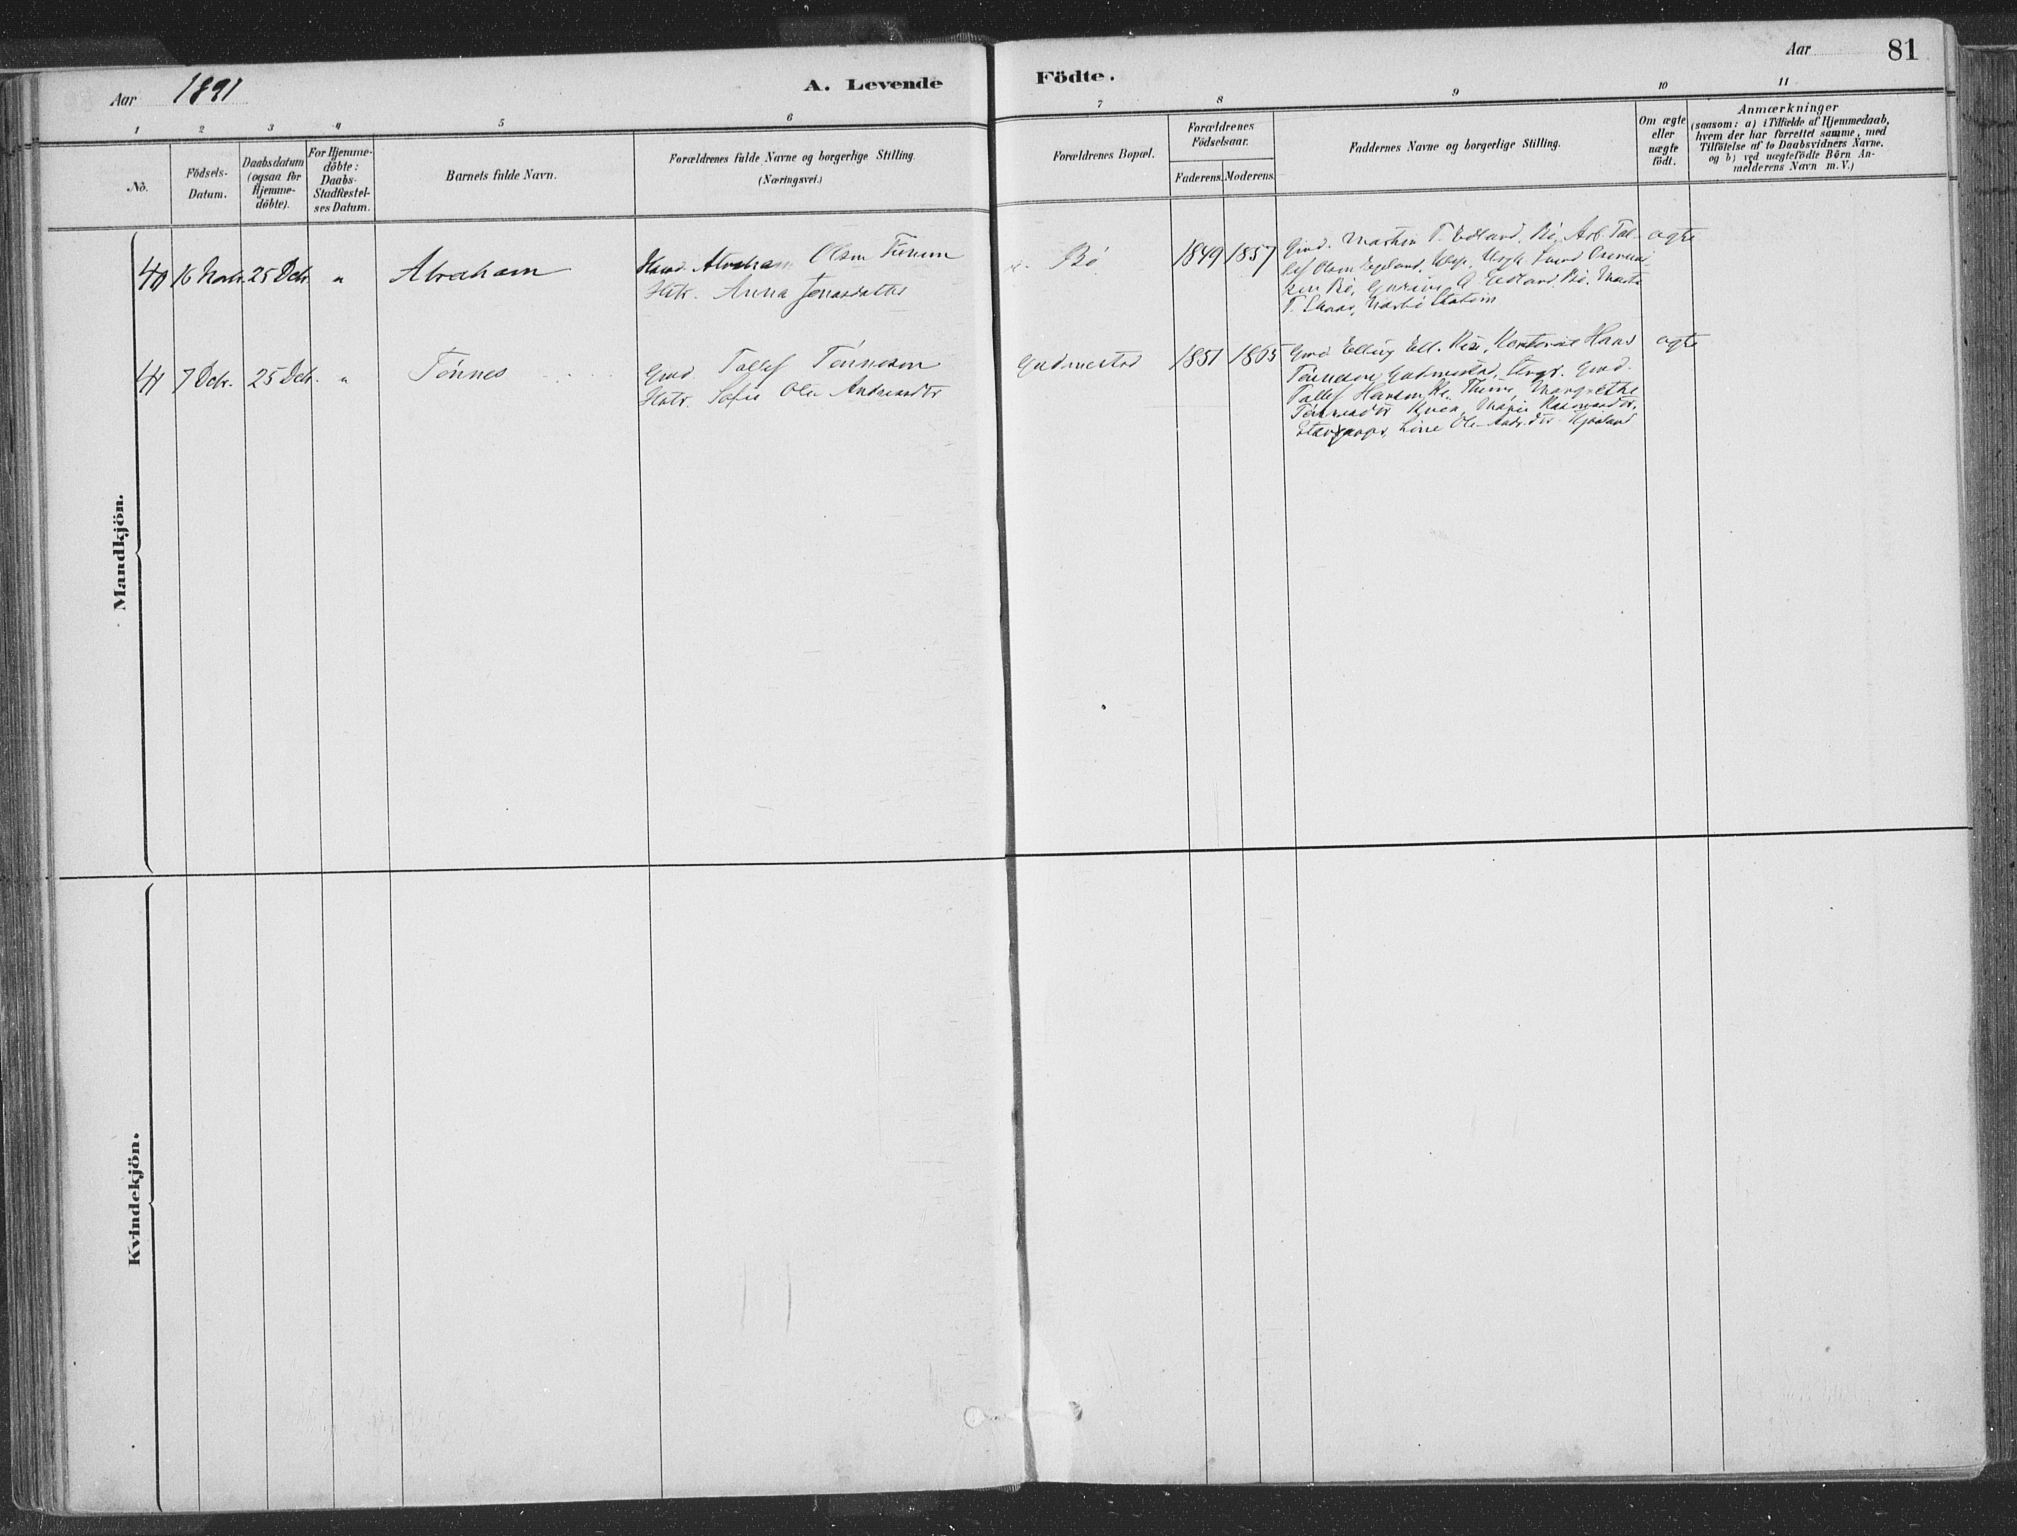 Aar 1891
A. Levende
Födte.
Aar
81
1 2 3 4 5 6 7 8 9 10 11
No.
Födsels-
Datum.
Daabsdatum
(ogsaa for
Hjemme-
döbte).
For Hjemme-
döbte:
Daabs-
Stadfæstel-
ses Datum.
Barnets fulde Navn.
Forældrenes fulde Navne og borgerlige Stilling.
(Næringsvei.)
Forældrenes Bopæl.
Forældrenes
Födselsaar.
Faderens.
Moderens.
Faddernes Navne og borgerlige Stilling.
Om ægte
eller
uægte
födt.
Anmærkninger
(saasom: a) i Tilfælde af Hjemmedaab,
hvem der har forrettet samme, med
Tilföielse af to Daabsvidners Navne.
og b) ved uægtefödte Börn An-
melderens Navn m. V.)
Mandkjön.
40 16 Novbr. 25 Dcbr. " Abraham
Abraham Olsen
Hstr. Anna Jonasdatter
Bö
1849 1857
Gmd. Martin T. Edland, Bö, Arb. Tal-
lef Olsen
Bö, Edland, Bö,
T.
ægte
41 7 Dcbr. 25 Dcbr. " Tönnes
Gmd. Tallef Tönnesen
Hstr. Sofie Ole Andreasdtr
Gudmestad
1851 1865
Gmd. Elling Ell. Hans
Tönnesen Gudmestad, Ungk. Gmd.
Tallef Hansen Margrethe
Tönnesdtr Marie Rasmusdtr.
Line Ole-Andr.dtr.
ægte
Kvindekjön.